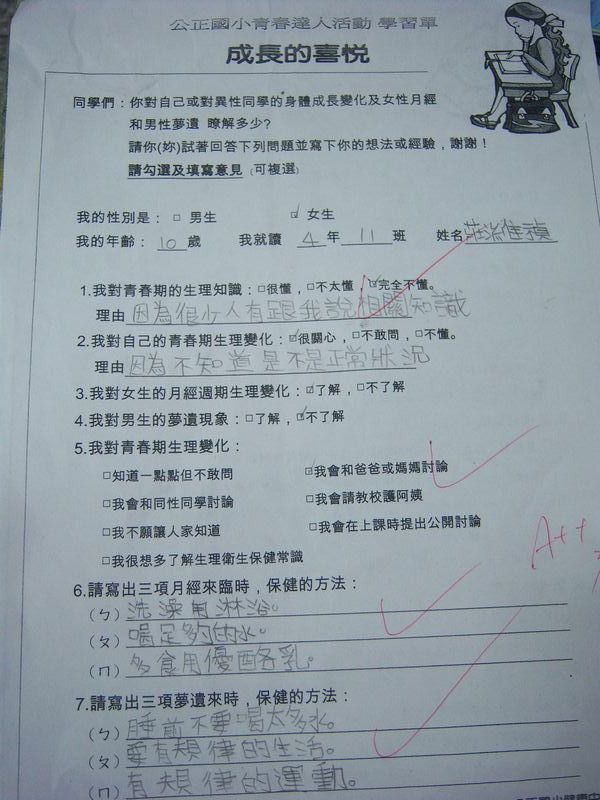 公正國小青春達人活動 學習單
成長的喜悅
同學們：你對自己或對異性同學的身體成長變化及女性月經
和男性夢遺 瞭解多少?
請你(妳)試著回答下列問題並寫下你的想法或經驗，謝謝！
請勾選及填寫意見 (可複選)
我的性別是： □ 男生 ☑ 女生
我的年齡：10 歲 我就讀 4 年 11 班 姓名 莊
1.我對青春期的生理知識：□很懂，□不太懂，☑完全不懂。
理由 因為很少人有跟我說相關知識
2.我對自己的青春期生理變化：☑很關心，□不敢問，□不懂。
理由 因為不知道是不是正常狀況
3.我對女生的月經週期生理變化：☑了解，□不了解
4.我對男生的夢遺現象：□了解，☑不了解
5.我對青春期生理變化：
□知道一點點但不敢問 ☑我會和爸爸或媽媽討論
□我會和同性同學討論 □我會請教校護阿姨
□我不願讓人家知道 □我會在上課時提出公開討論
□我很想多了解生理衛生保健常識
A++
6.請寫出三項月經來臨時，保健的方法：
(ㄅ) 洗澡用淋浴。
(ㄆ) 喝足夠的水。
(ㄇ) 多食用優酪乳。
7.請寫出三項夢遺來時，保健的方法：
(ㄅ) 睡前不要喝太多水。
(ㄆ) 要有規律的生活。
(ㄇ) 有規律的運動。